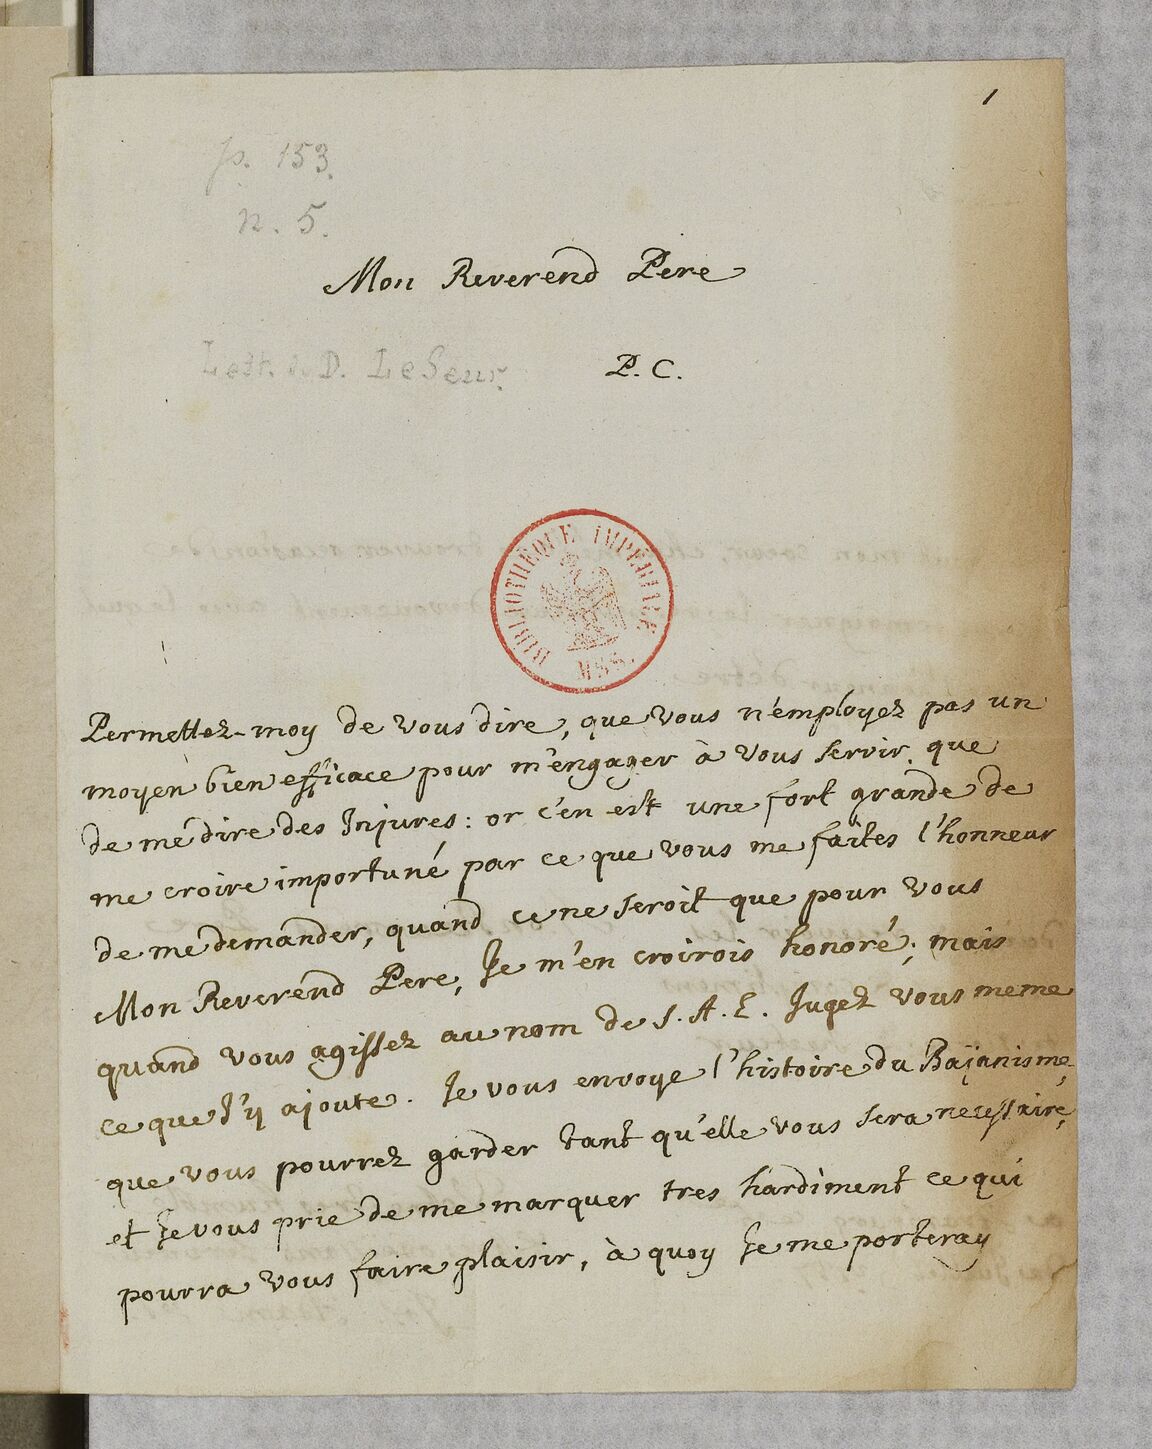 1
p. 153.
n. 5.
Mon Reverend Pere
Lett. D. Le Seur.
P. C.
BIBLIOTHEQUE IMPÉRIALE
MSS.
Permettez-moy de vous dire, que vous n'employez pas un
moyen bien efficace pour m'engager à vous servir, que
de me dire des Injures: or c'en est une fort grande de
me croire importuné par ce que vous me faites l'honneur
de me demander, quand ce ne seroit que pour vous
Mon Reverend Pere, Je m'en croirois honoré; mais
quand vous agissez au nom de S. A. E. Jugez vous meme
ce que J'y ajoute. Je vous envoye l'histoire du Baïanisme,
que vous pourrez garder tant qu'elle vous sera necessaire,
et Je vous prie de me marquer tres hardiment ce qui
pourra vous faire plaisir, à quoy Je me porteray